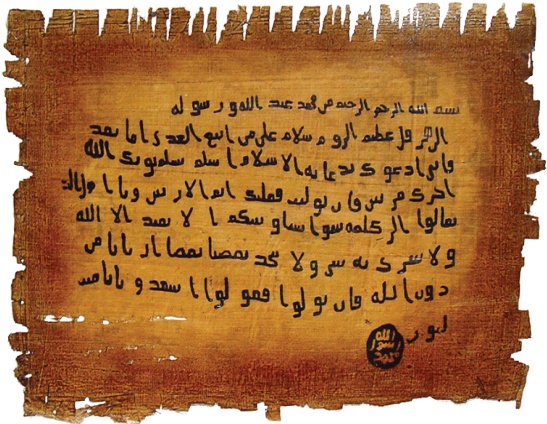 بسم الله الرحمن الرحيم من محمد عبد الله و رسوله
الى هرقل عظيم الروم سلام على من اتبع الهدى اما بعد
فاني ادعوك بدعاية الاسلام اسلم تسلم يوتك الله
اجرك مرتين فان توليت فعليك اثم الاريسين و يا اهل
تعالوا الى كلمة سوا بيننا و بينكم ا لا نعبد الا الله
و لا نشرك به شيا و لا يتخذ بعضنا بعضا اربابا من
دون الله فان تولوا فقولوا اشهدوا بانا مس
لمون
الله
رسول
محمد